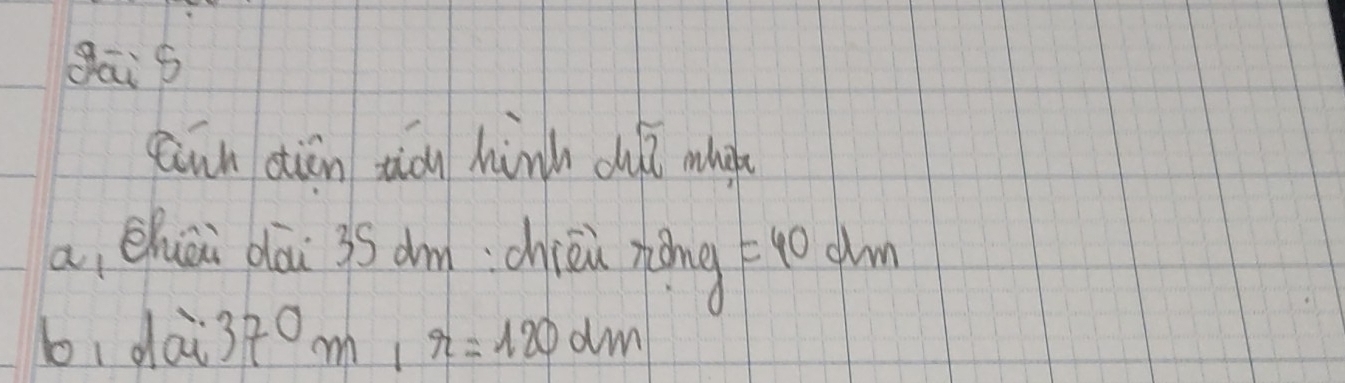 Bài 5
Tính diện tích hình chữ nhật
a, Chiều dài 35 dm : chiều rộng = 40 dm
b, dài 370 m, r = 120 dm